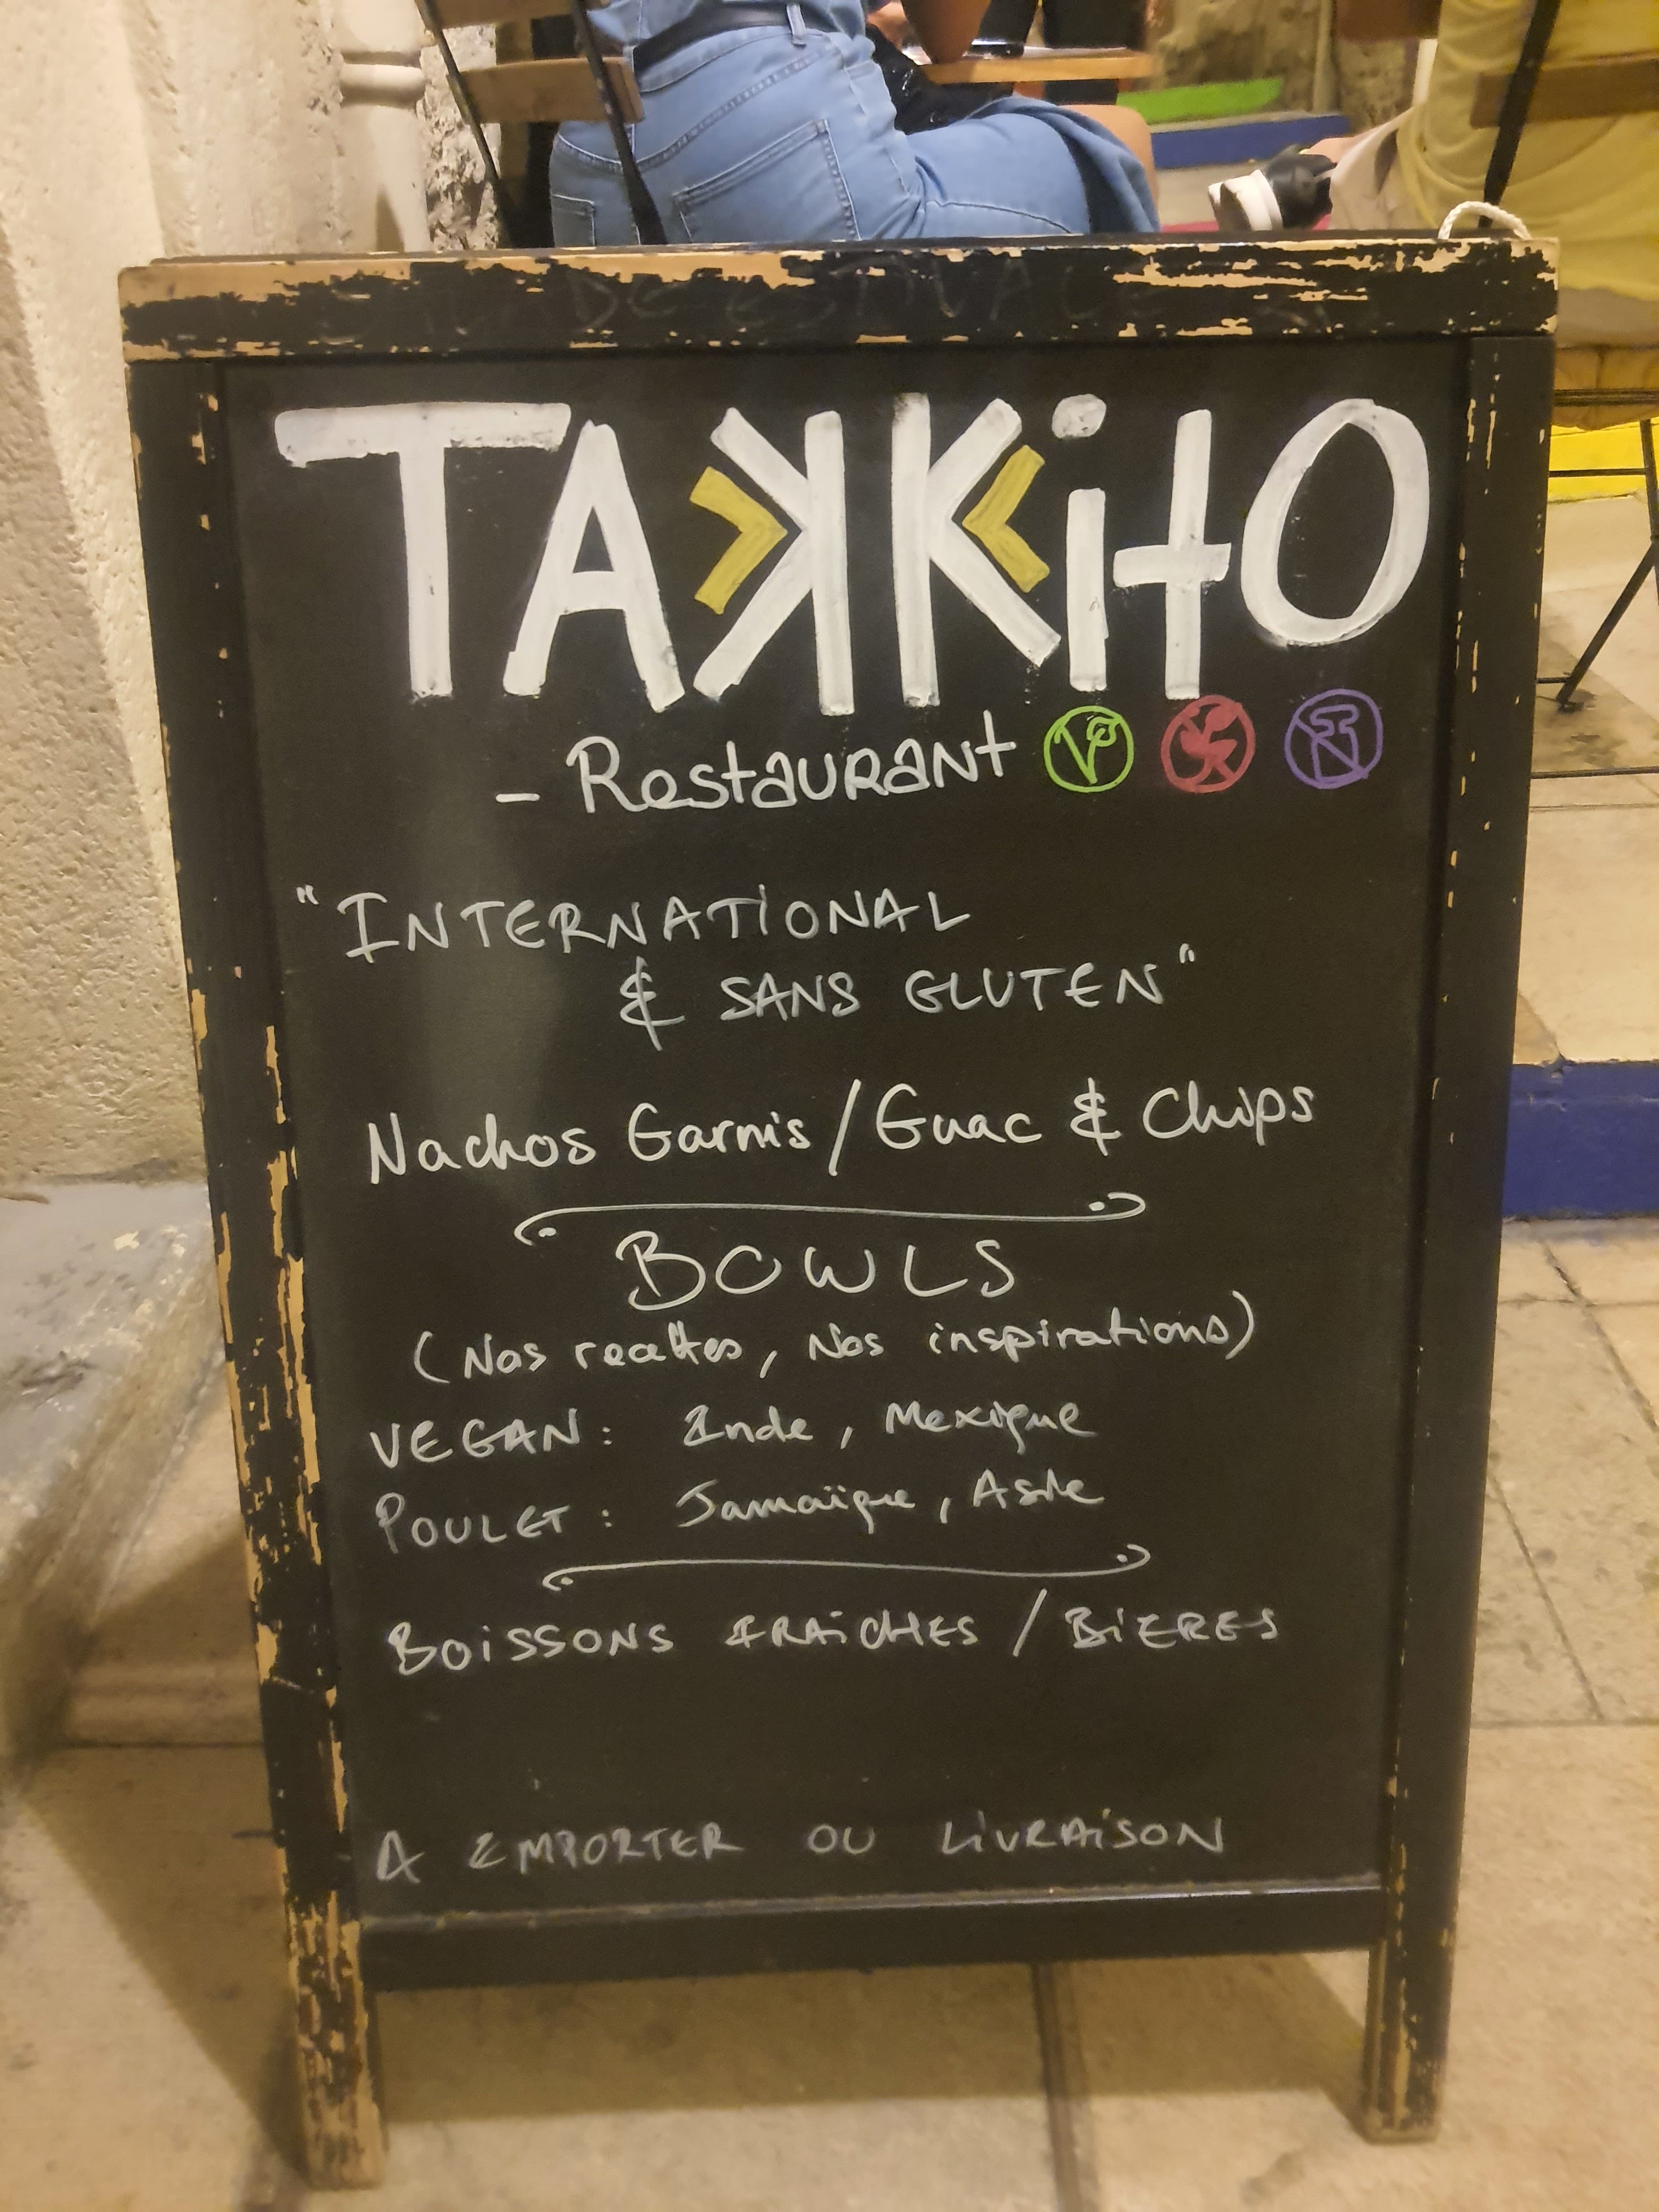 TAKKitO
- Restaurant
"INTERNATIONAL
& SANS GLUTEN"
Nachos Garnis / Guac & Chips
BOWLS
(Nos recettes, Nos inspirations)
VEGAN : Inde, Mexique
POULET : Jamaïque, Asie
BOISSONS FRAICHES / BIERES
A EMPORTER OU LIVRAISON